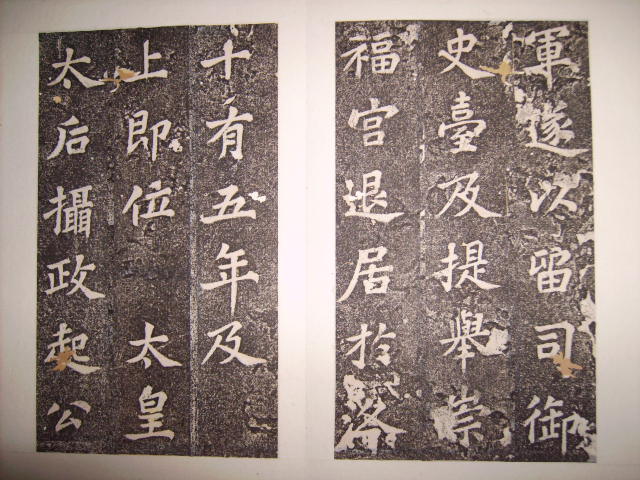 軍遂以留司御
史臺及提舉崇
福宮退居於洛
十有五年及
上即位 太皇
太后攝政起公